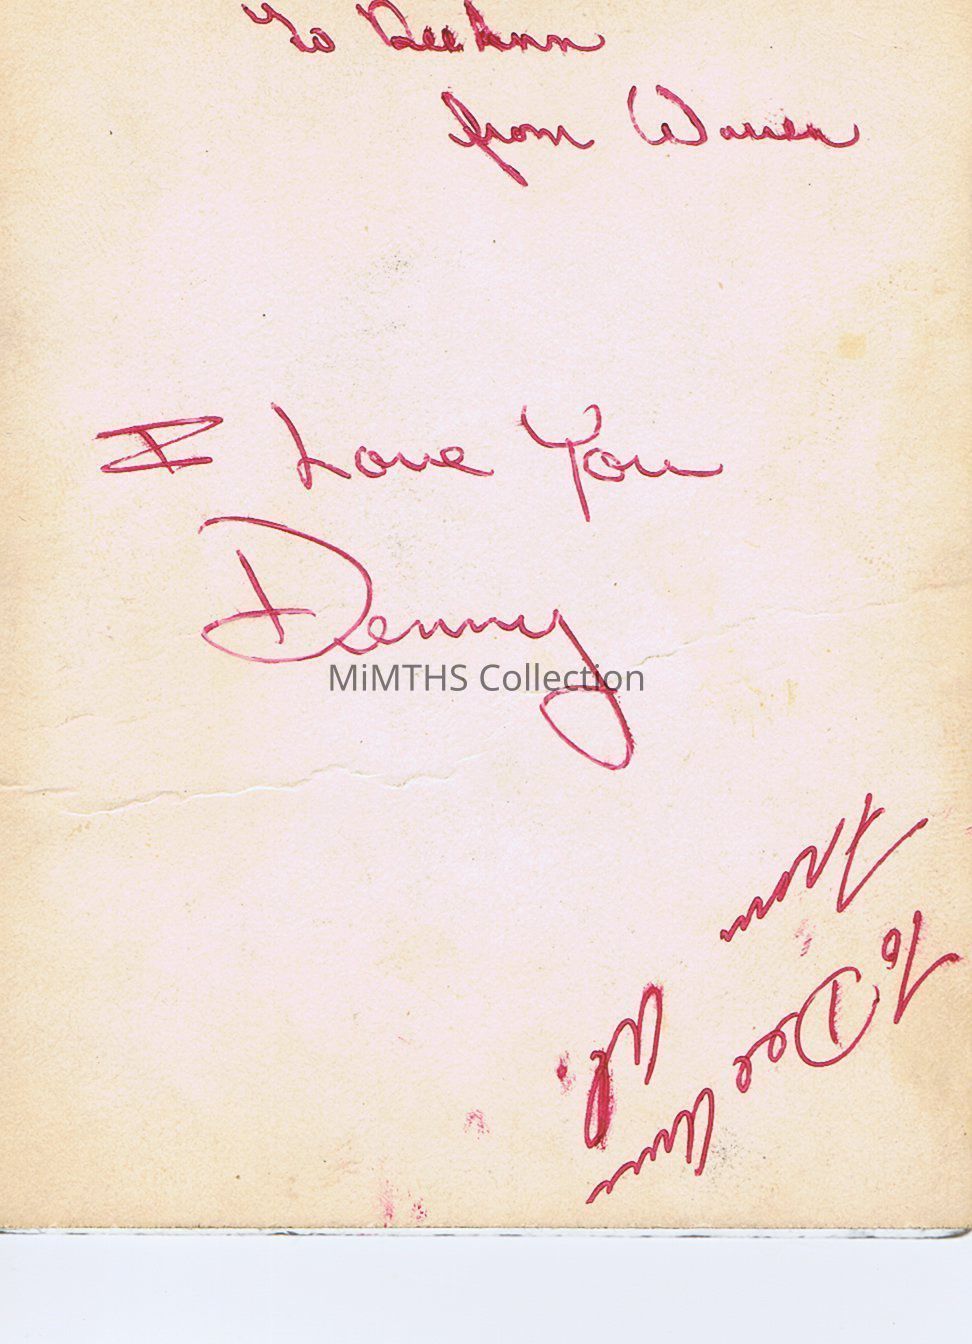 To DeeAnn
from Warren
I Love You
Denny
MiMTHS Collection
To Dee Ann
From